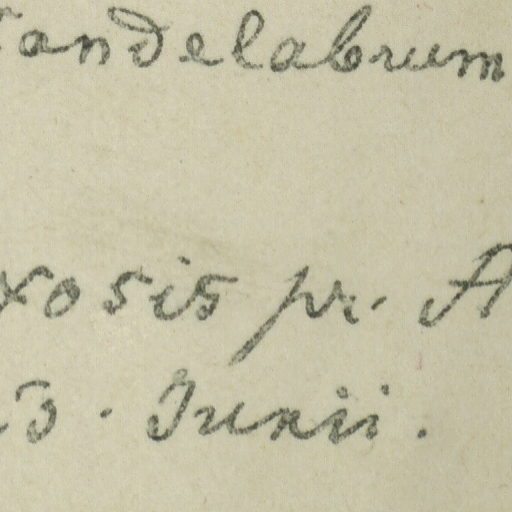 candelabrum
xosis pr. A
3. Junii.